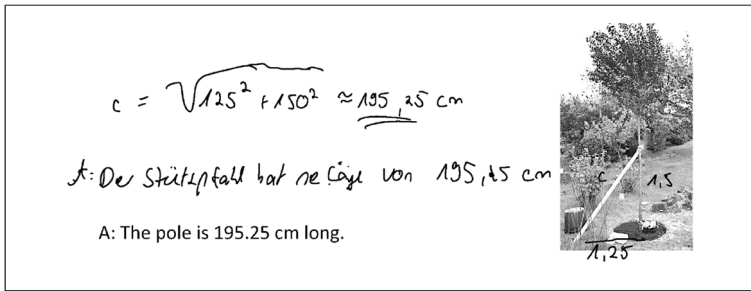 c = √125² + 150² ≈ 195,25 cm
A: Der Stützpfahl hat ne Länge von 195,25 cm
A: The pole is 195.25 cm long.
c
1,5
1,25